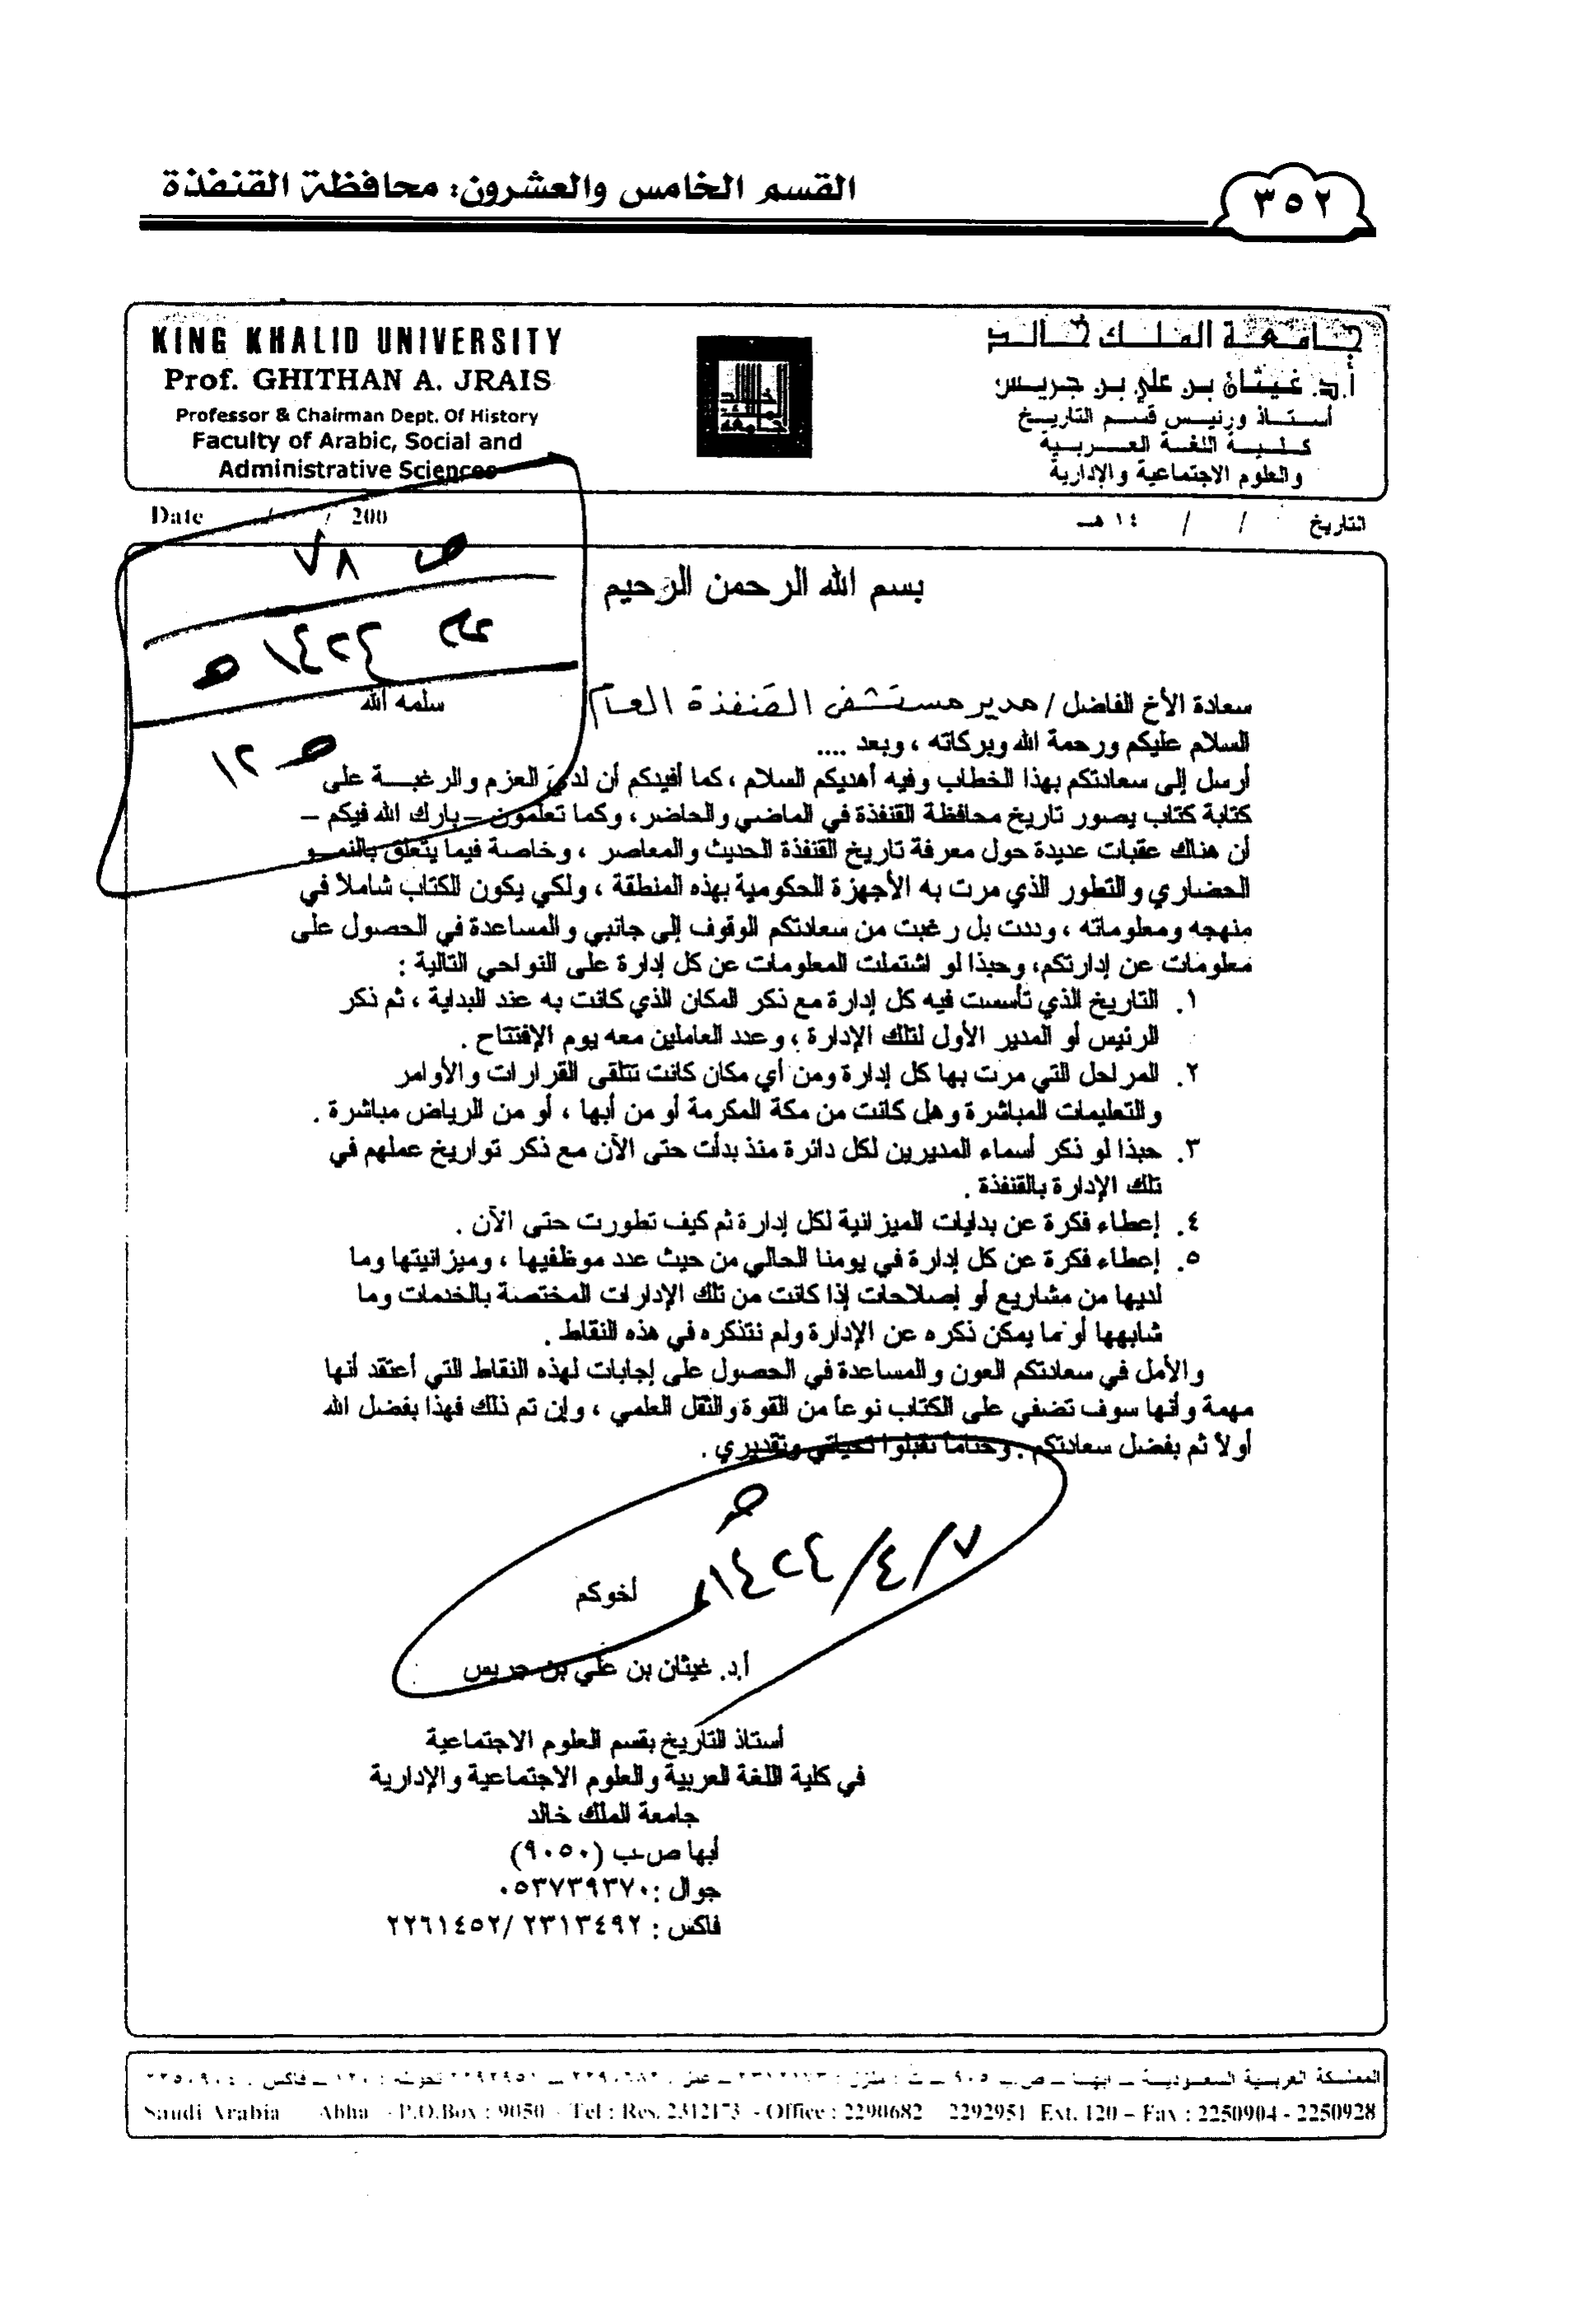 ٣٥٢
القسم الخامس والعشرون: محافظة القنفذة
KING KHALID UNIVERSITY
Prof. GHITHAN A. JRAIS
Professor & Chairman Dept. Of History
Faculty of Arabic, Social and
Administrative Sciences
جامعة الملك خالد
أ.د. غيثان بن علي بن جريس
أستاذ ورئيس قسم التاريخ
كلية اللغة العربية
والعلوم الاجتماعية والإدارية
Date / / 200
التاريخ / / ١٤هـ
ص ٧٨
١٤٢٤ هـ
ص ١٢
بسم الله الرحمن الرحيم
سعادة الأخ الفاضل / مدير مستشفى القنفذة العام سلمه الله
السلام عليكم ورحمة الله وبركاته ، وبعد ....
أرسل إلى سعادتكم بهذا الخطاب وفيه أهديكم السلام ، كما أفيدكم أن لديّ العزم والرغبة على
كتابة كتاب يصور تاريخ محافظة القنفذة في الماضي والحاضر، وكما تعلمون – بارك الله فيكم –
أن هناك عقبات عديدة حول معرفة تاريخ القنفذة الحديث والمعاصر ، وخاصة فيما يتعلق بالنمو
الحضاري والتطور الذي مرت به الأجهزة الحكومية بهذه المنطقة ، ولكي يكون الكتاب شاملا في
منهجه ومعلوماته ، وددت بل رغبت من سعادتكم الوقوف إلى جانبي والمساعدة في الحصول على
معلومات عن إدارتكم، وحبذا لو اشتملت المعلومات عن كل إدارة على النواحي التالية :
١. التاريخ الذي تأسست فيه كل إدارة مع ذكر المكان الذي كانت به عند البداية ، ثم ذكر
الرئيس أو المدير الأول لتلك الإدارة ، وعدد العاملين معه يوم الإفتتاح .
٢. المراحل التي مرت بها كل إدارة ومن أي مكان كانت تتلقى القرارات والأوامر
والتعليمات المباشرة وهل كانت من مكة المكرمة أو من أبها ، أو من الرياض مباشرة .
٣. حبذا لو ذكر أسماء المديرين لكل دائرة منذ بدأت حتى الآن مع ذكر تواريخ عملهم في
تلك الإدارة بالقنفذة .
٤. إعطاء فكرة عن بدايات الميزانية لكل إدارة ثم كيف تطورت حتى الآن .
٥. إعطاء فكرة عن كل إدارة في يومنا الحالي من حيث عدد موظفيها ، وميزانيتها وما
لديها من مشاريع أو إصلاحات إذا كانت من تلك الإدارات المختصة بالخدمات وما
شابهها أو ما يمكن ذكره عن الإدارة ولم نتذكره في هذه النقاط .
والأمل في سعادتكم العون والمساعدة في الحصول على إجابات لهذه النقاط التي أعتقد أنها
مهمة وأنها سوف تضفي على الكتاب نوعاً من القوة والثقل العلمي ، وإن تم ذلك فهذا بفضل الله
أولاً ثم بفضل سعادتكم . وختاماً تقبلوا تحياتي وتقديري .
٧/٤/١٤٢٤هـ
أخوكم
أ.د. غيثان بن علي بن جريس
أستاذ التاريخ بقسم العلوم الاجتماعية
في كلية اللغة العربية والعلوم الاجتماعية والإدارية
جامعة الملك خالد
أبها ص.ب (٩٠٥٠)
جوال : ٠٥٣٧٣٩٣٧٠
فاكس : ٢٣١٣٤٩٢/ ٢٢٦١٤٥٢
المملكة العربية السعودية – أبها –
Saudi Arabia Abha - P.O.Box : 9050 - Tel : Res. 2312173 - Office : 2290682 2292951 Ext. 120 – Fax : 2250904 - 2250928